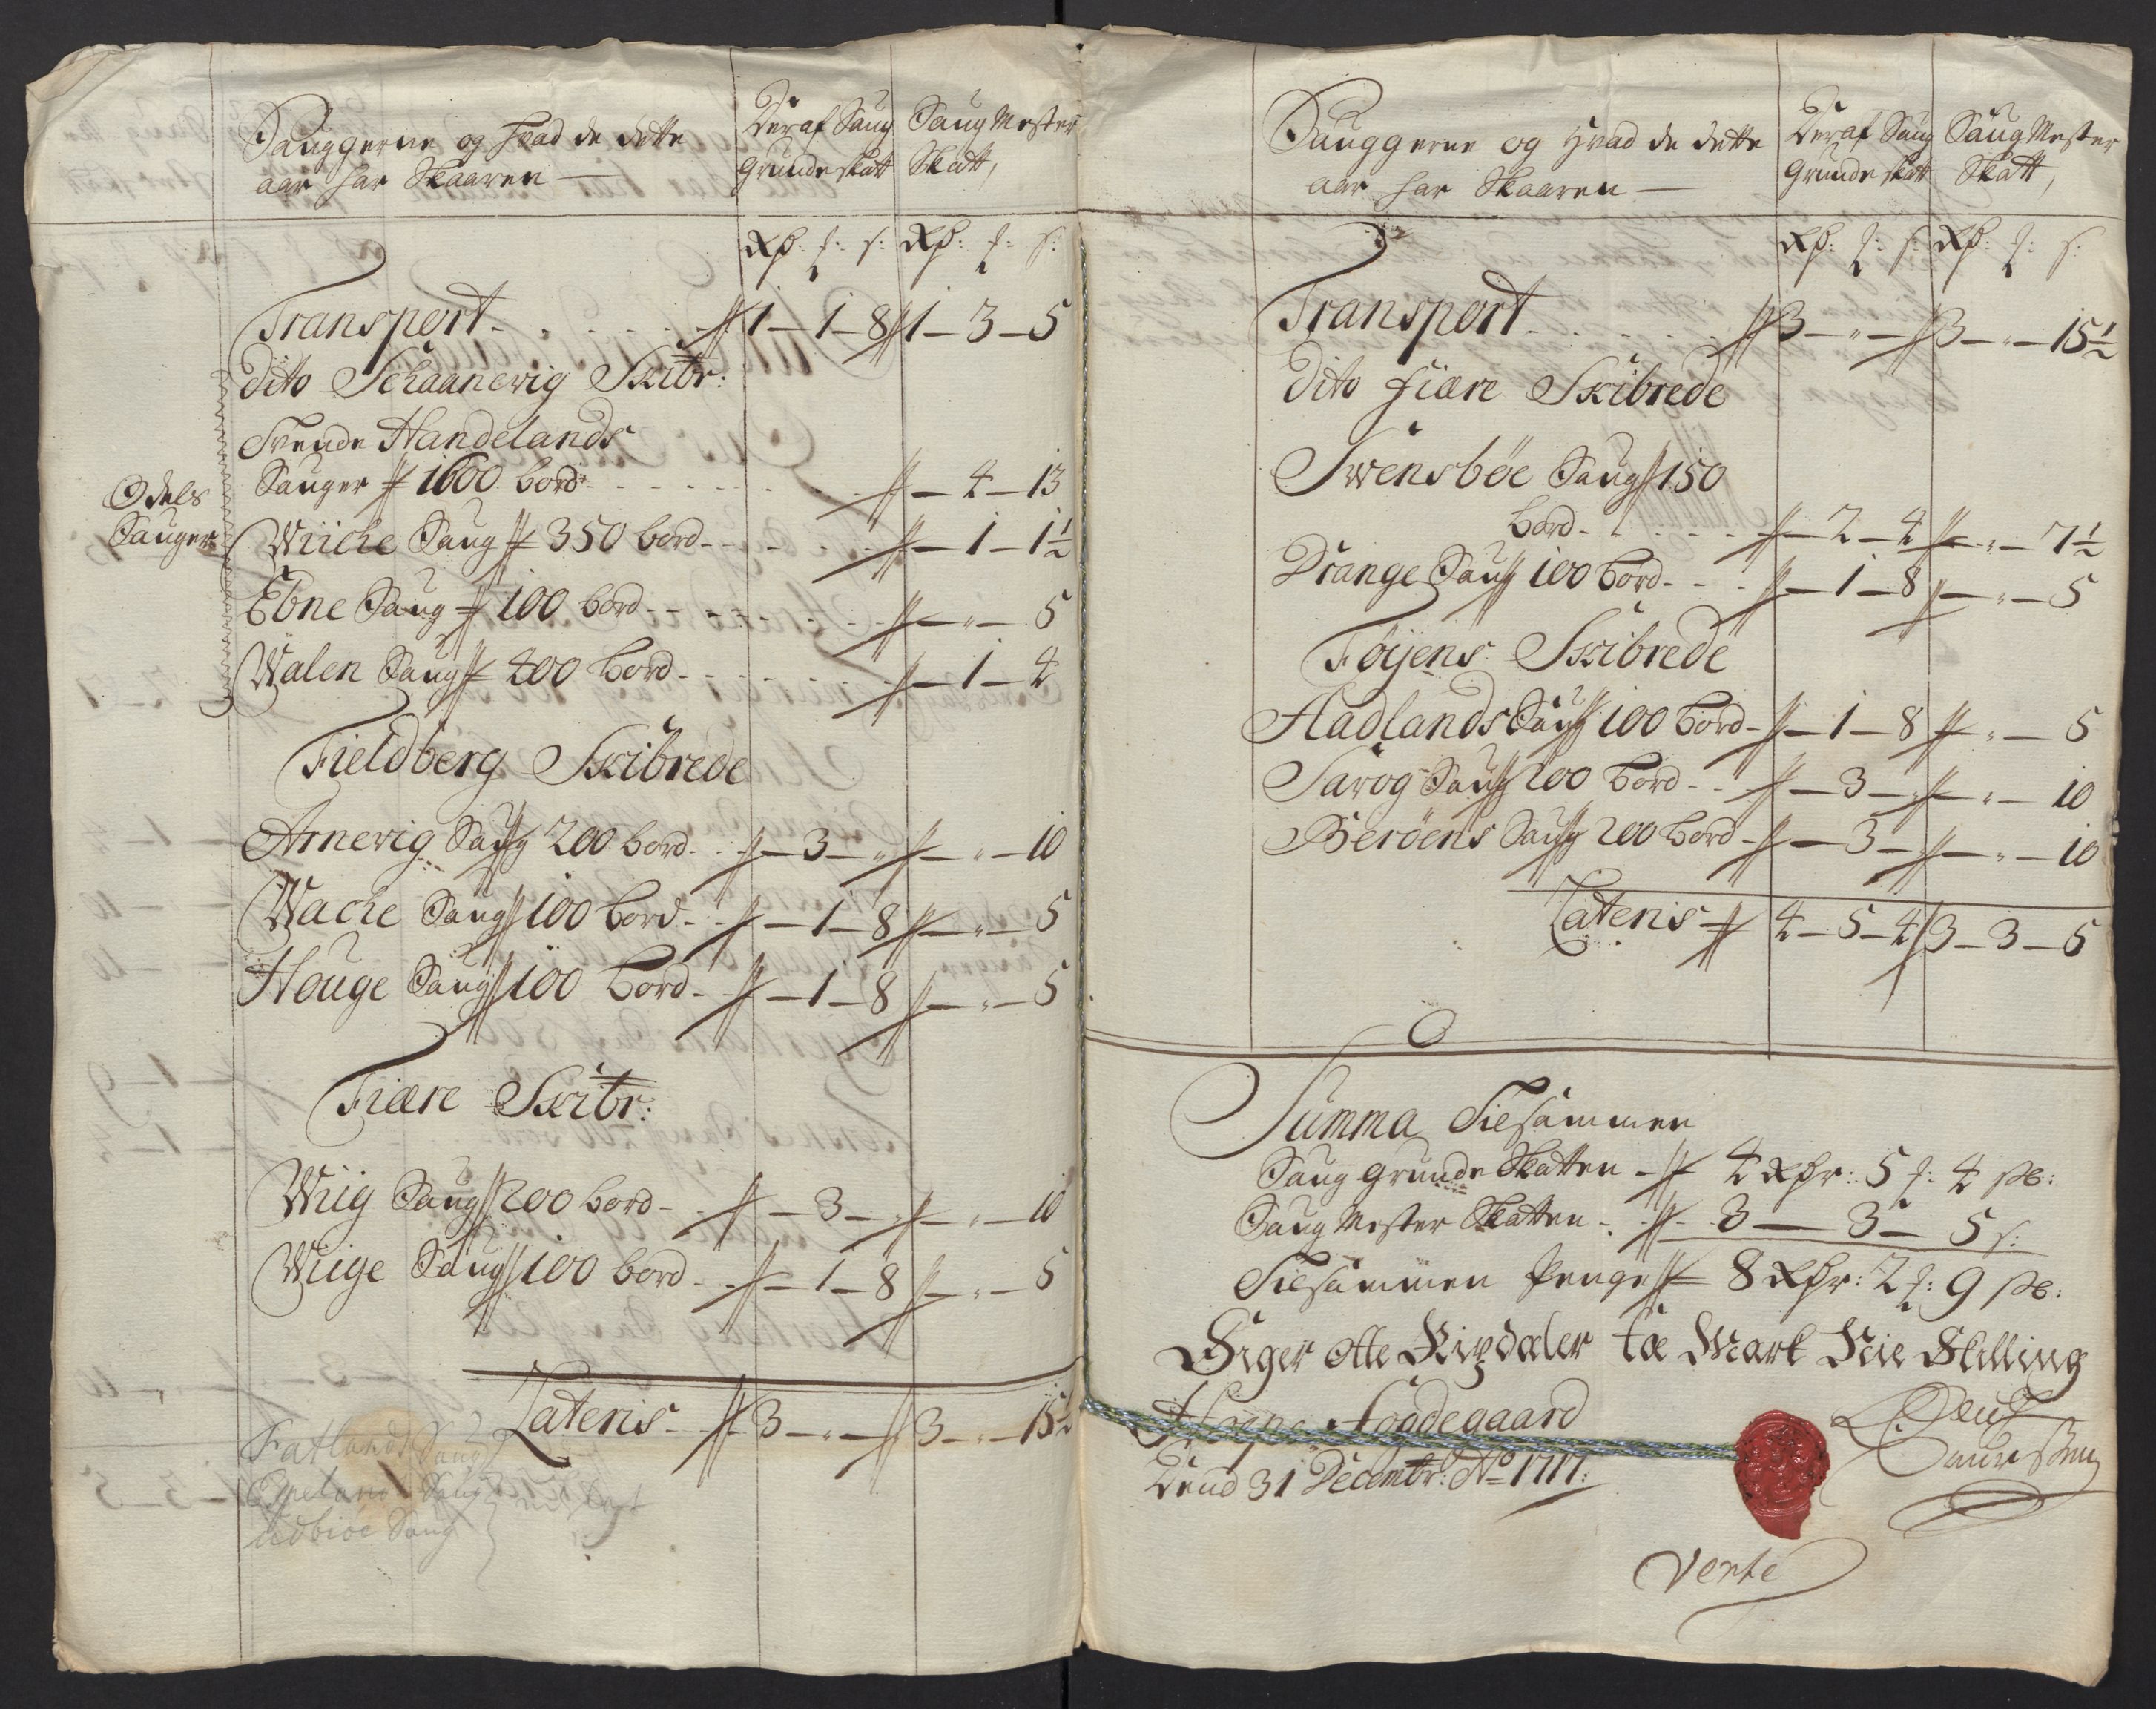 Sauggerne og Hvad de dette
aar har Skaaren —
Deraf Saug
Grundeskatt
Saug Mester
Skatt,
Rd: ƒ: s: Rd: ƒ: s:
Transport 1 — 1 — 8 1 — 3 — 5
Dito Schaanevig Skibr:
Svende Handelands
Sauger 1600 bord — 4 — 13
Odels
Sauger
Wiiche Saug 350 bord — 1 — 1½
Ebne Saug 100 bord — " — 5
Walen Saug 400 bord — 1 — 4
Fieldberg Skibrede
Arnevig Saug 200 bord — 3 — " — " — 10
Wache Saug 100 bord — 1 — 8 — " — 5
Houge Saug 100 bord — 1 — 8 — " — 5
Fiære Skibr:
Wiig Saug 200 bord — 3 — " — " — 10
Wiige Saug 100 bord — 1 — 8 — " — 5
Lateris 3 — " — 3 — " — 15½
Fatlands Saug
Espeland Saug
Udbiöe Saug
Sauggerne og Hvad de dette
aar har Skaaren —
Deraf Saug
Grundeskatt
Saug Mester
Skatt,
Rd: ƒ: s: Rd: ƒ: s:
Transport 3 — " — 3 — " — 15½
Dito Fiære Skibrede
Swensböe Saug 150
bord — 2 — 4 — " — 7½
Drange Saug 100 bord — 1 — 8 — " — 5
Föyens Skibrede
Hadlands Saug 100 bord — 1 — 8 — " — 5
Sarog Saug 200 bord — 3 — " — " — 10
Beröens Saug 200 bord — 3 — " — " — 10
Lateris 4 — 5 — 4 3 — 3 — 5
Summa Tilsammen
Saug Grunde Skatten 4 Rdr: 5 ƒ: 4 sk:
Saug Mester Skatten 3 — 3 — 5 s:
Tilsammen Penge 8 Rdr: 2 ƒ: 9 sk:
Siger otte Rixdaler to Mark Nie Skilling
Fogdegaard
Dend 31 Decembr: Ao 1717:
Verte